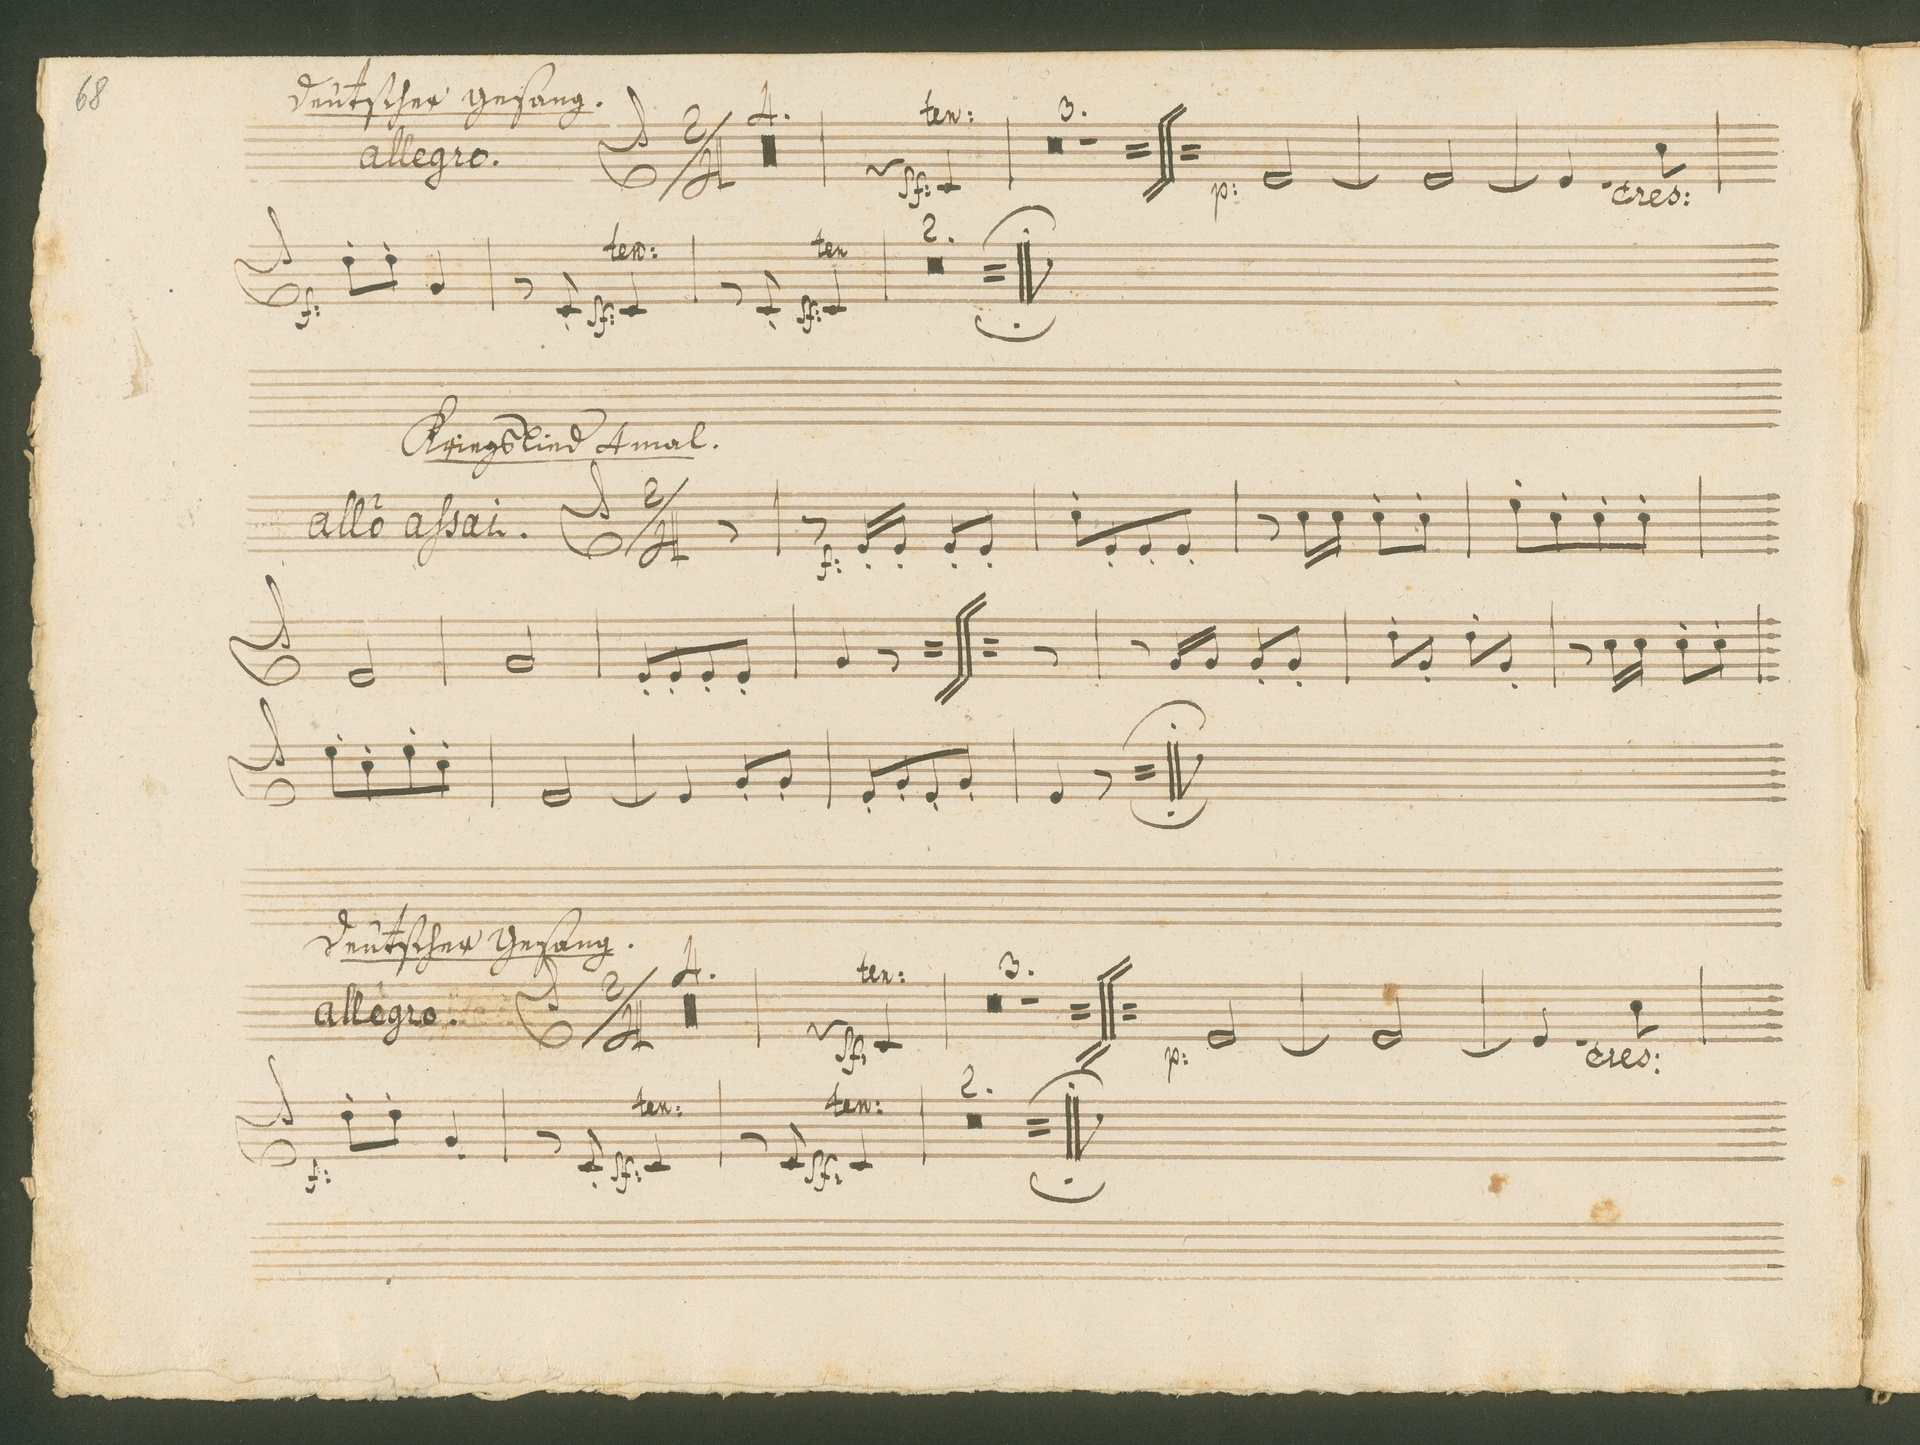 68
Deutscher Gesang.
allegro. 2/4 4. ten: sf: 3. p: cres:
f: ten: sf: ten sf: 2.
Kriegslied 4mal.
allo assai. 2/4 f:
Deutscher Gesang.
allegro. 2/4 4. ten: sf: 3. p: cres:
f: ten: sf: ten: sf: 2.